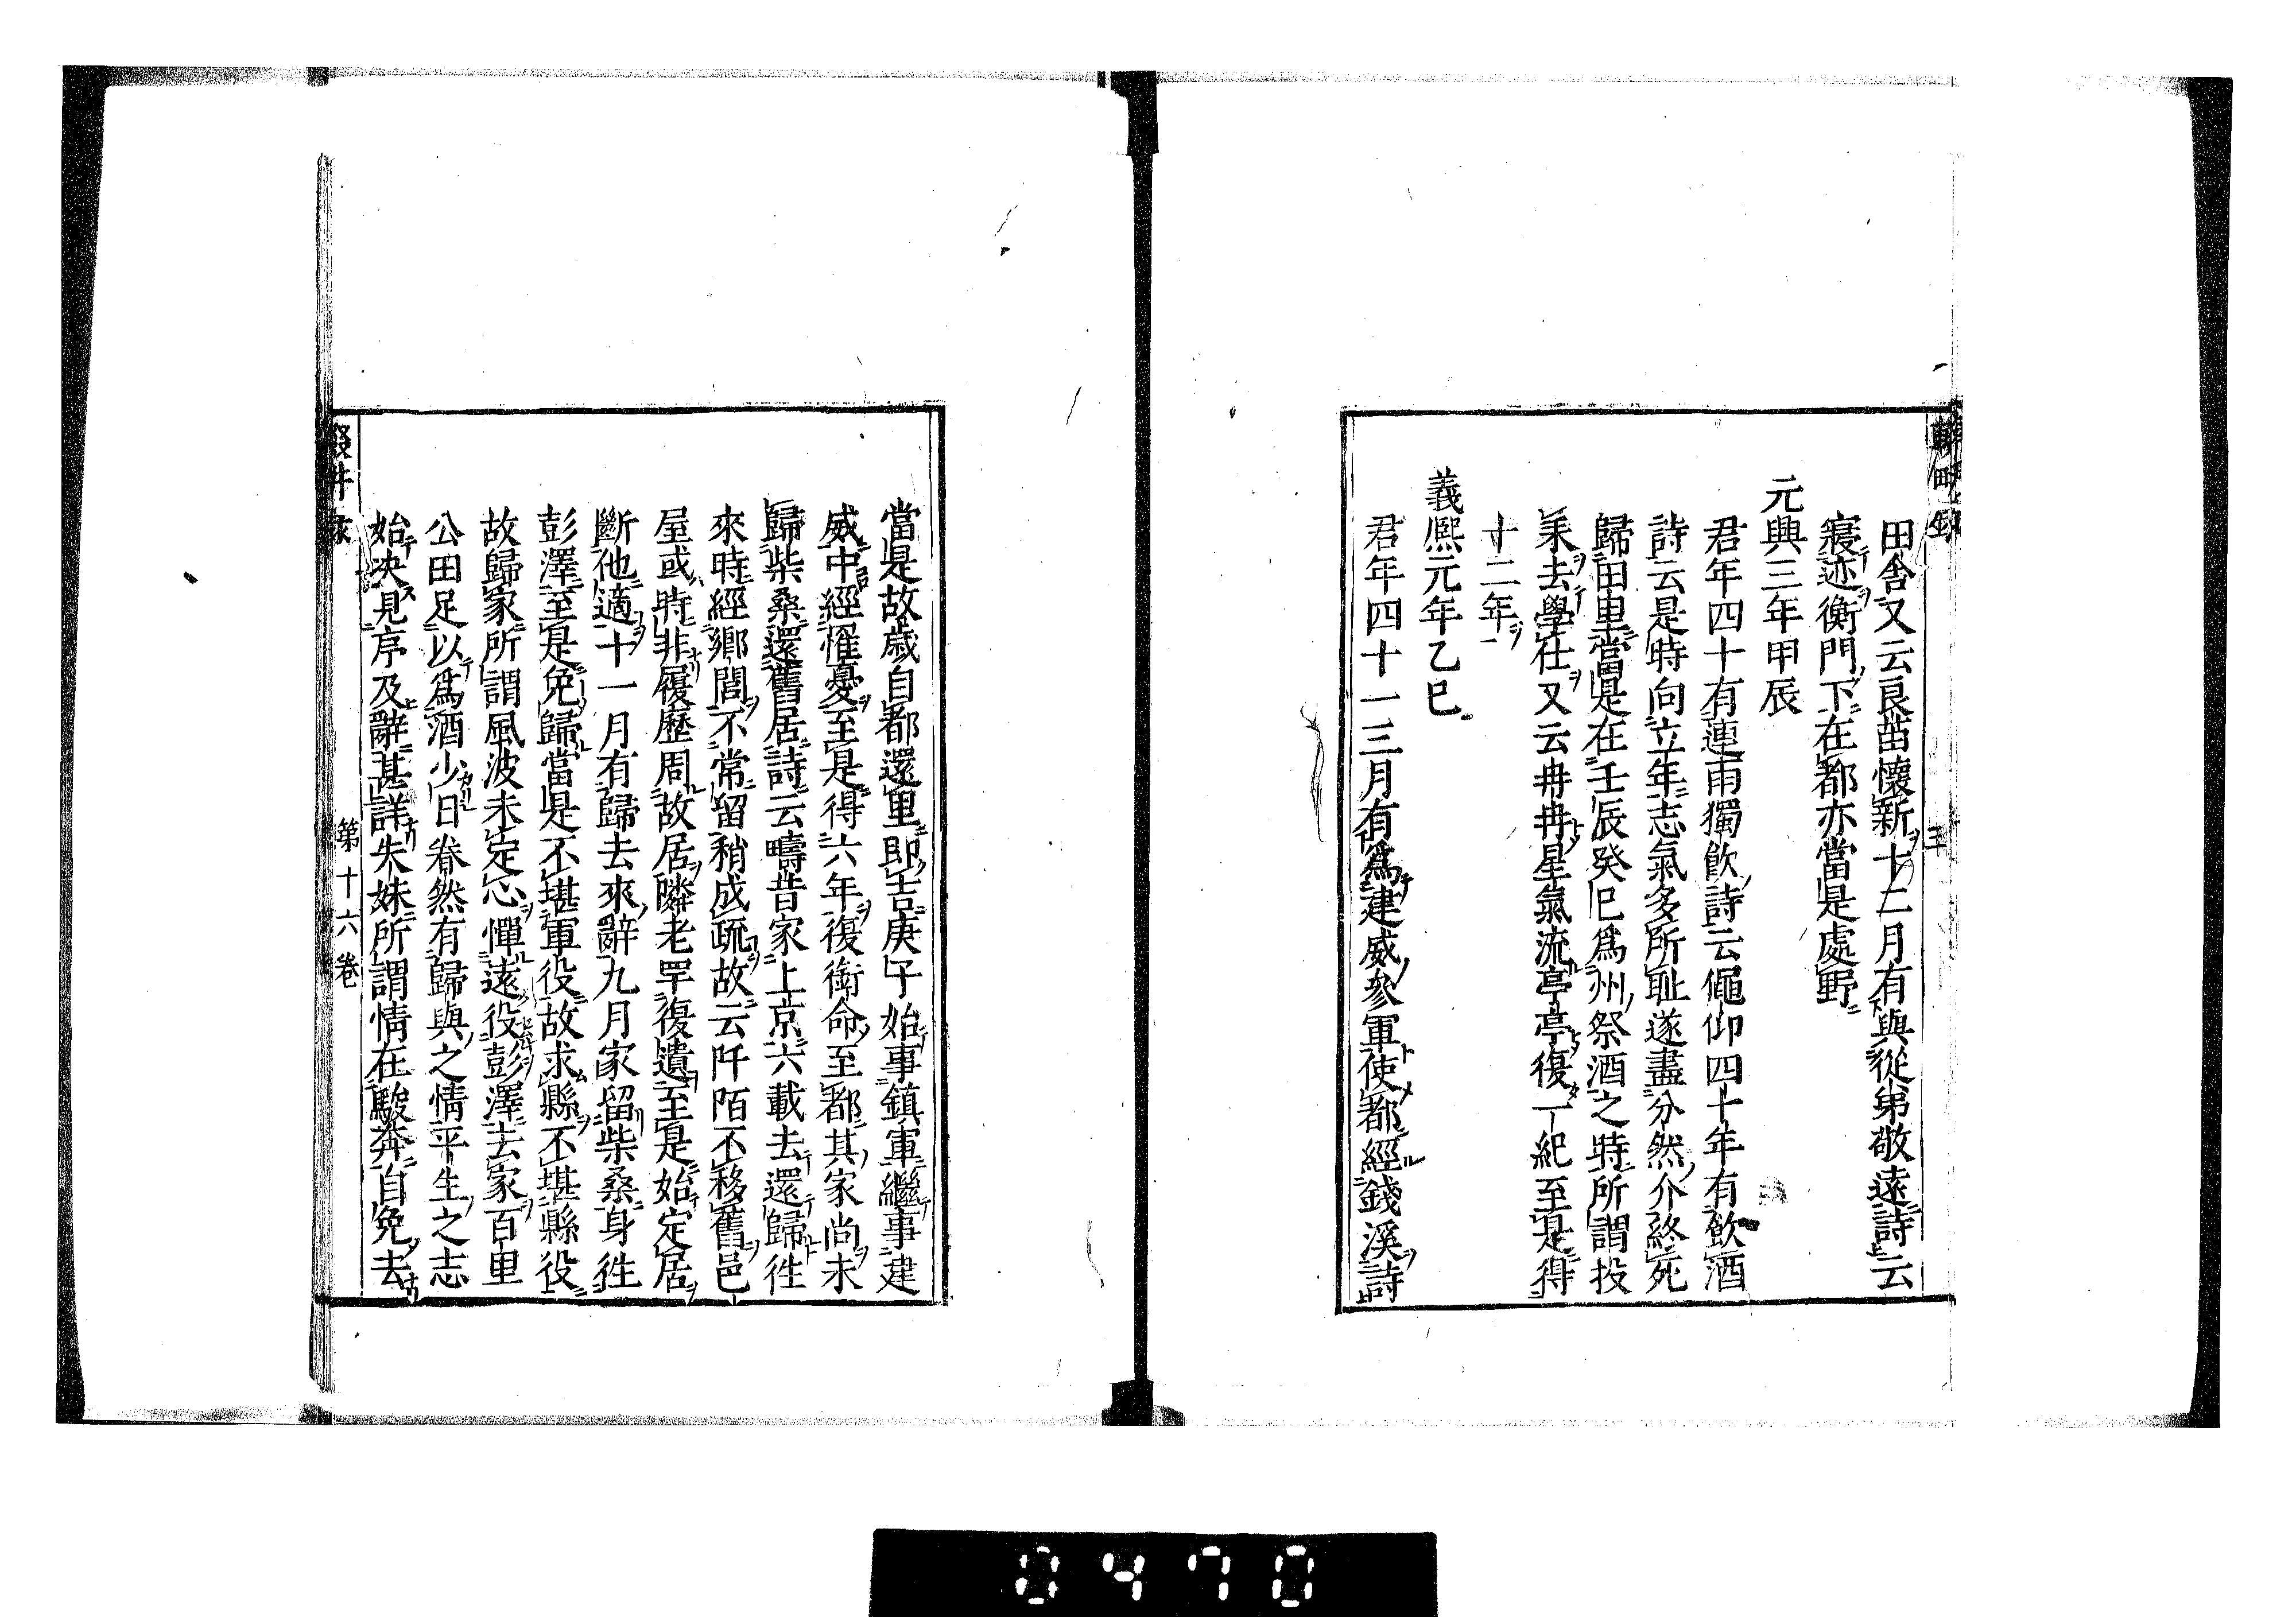 田舍又云良苗懷新十二月有與從弟敬遠詩云
寢迹衡門下在都亦當是處野
元興三年甲辰
君年四十有連雨獨飮詩云僶仰四十年有飮酒
詩云是時向立年志氣多所耻遂盡分然介終死
歸田里當是在壬辰癸巳爲州祭酒之時所謂投
耒去學仕又云冉冉星氣流亭亭復一紀至是得
十二年
義熙元年乙巳
君年四十一三月有爲建威參軍使都經錢溪詩
當是故歲自都還里即吉庚子始事鎮軍繼事建
威中經罹憂至是得六年復銜命至都其家尚未
歸柴桑還舊居詩云疇昔家上京六載去還歸徃
來時經鄉閭不常留稍成疏故云阡陌不移舊邑
屋或時非履歷周故居隣老罕復遺至是始定居
斷他適十一月有歸去來辭九月家留柴桑身徃
彭澤至是免歸當是不堪軍役故求縣不堪縣役
故歸家所謂風波未定心憚遠役彭澤去家百里
公田足以爲酒少日眷然有歸與之情平生之志
始决見序及辭甚詳失妹所謂情在駿奔自免去
第十六卷